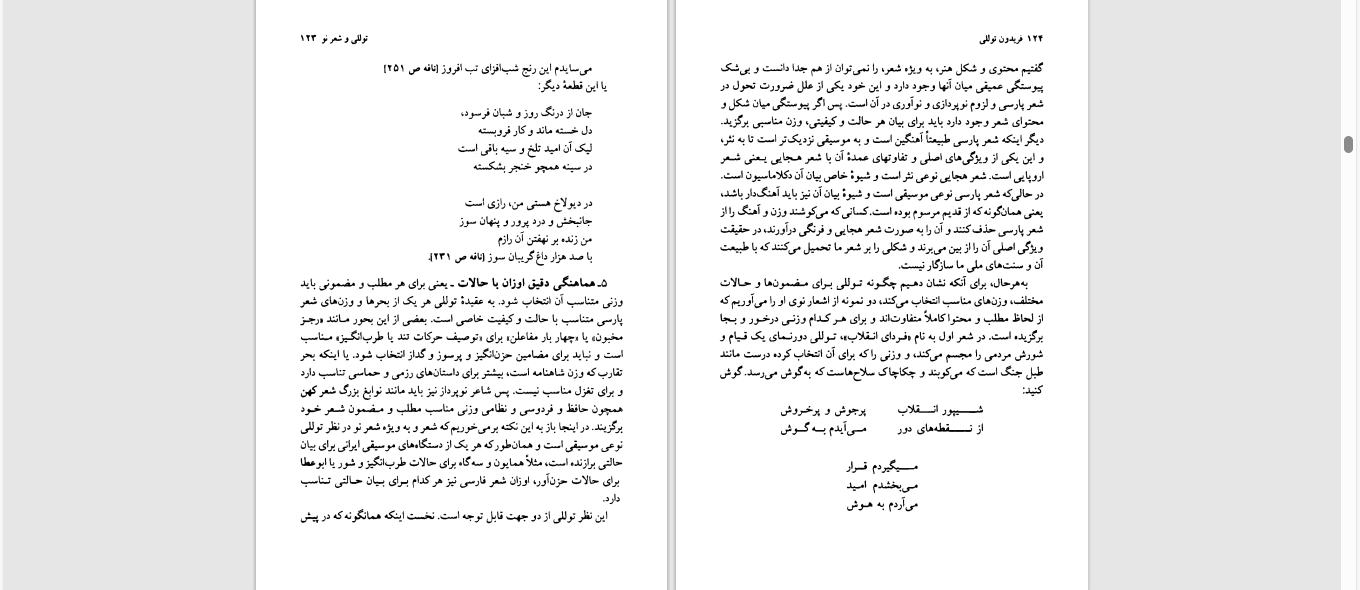 توللی و شعر نو ۱۲۳
می‌سایدم این رنج شب‌افزای تب افروز [نافه ص ۲۵۱]
یا این قطعهٔ دیگر:
جان از درنگ روز و شبان فرسود،
دل خسته ماند و کار فروبسته
لیک آن امید تلخ و سیه باقی است
در سینه همچو خنجر بشکسته
در دیولاخ هستی من، رازی است
جانبخش و درد پرور و پنهان سوز
من زنده بر نهفتن آن رازم
با صد هزار داغ گریبان سوز [نافه ص ۲۳۱].
۵ـ هماهنگی دقیق اوزان با حالات ـ یعنی برای هر مطلب و مضمونی باید
وزنی متناسب آن انتخاب شود. به عقیدهٔ توللی هر یک از بحرها و وزن‌های شعر
پارسی متناسب با حالت و کیفیت خاصی است. بعضی از این بحور مانند «رجز
مخبون» یا «چهار بار مفاعلن» برای «توصیف حرکات تند یا طرب‌انگیز» مناسب
است و نباید برای مضامین حزن‌انگیز و پرسوز و گداز انتخاب شود. یا اینکه بحر
تقارب که وزن شاهنامه است، بیشتر برای داستان‌های رزمی و حماسی تناسب دارد
و برای تغزل مناسب نیست. پس شاعر نوپرداز نیز باید مانند نوابغ بزرگ شعر کهن
همچون حافظ و فردوسی و نظامی وزنی مناسب مطلب و مضمون شعر خود
برگزیند. در اینجا باز به این نکته برمی‌خوریم که شعر و به ویژه شعر نو در نظر توللی
نوعی موسیقی است و همان‌طور که هر یک از دستگاه‌های موسیقی ایرانی برای بیان
حالتی برازنده است، مثلاً همایون و سه‌گاه برای حالات طرب‌انگیز و شور یا ابوعطا
برای حالات حزن‌آور، اوزان شعر فارسی نیز هر کدام برای بیان حالتی تناسب
دارد.
این نظر توللی از دو جهت قابل توجه است. نخست اینکه همانگونه که در پیش
۱۲۴ فریدون توللی
گفتیم محتوی و شکل هنر، به ویژه شعر، را نمی‌توان از هم جدا دانست و بی‌شک
پیوستگی عمیقی میان آنها وجود دارد و این خود یکی از علل ضرورت تحول در
شعر پارسی و لزوم نوپردازی و نوآوری در آن است. پس اگر پیوستگی میان شکل و
محتوای شعر وجود دارد باید برای بیان هر حالت و کیفیتی، وزن مناسبی برگزید.
دیگر اینکه شعر پارسی طبیعتاً آهنگین است و به موسیقی نزدیک‌تر است تا به نثر،
و این یکی از ویژگی‌های اصلی و تفاوتهای عمدهٔ آن با شعر هجایی یعنی شعر
اروپایی است. شعر هجایی نوعی نثر است و شیوهٔ خاص بیان آن دکلاماسیون است.
در حالی‌که شعر پارسی نوعی موسیقی است و شیوهٔ بیان آن نیز باید آهنگ‌دار باشد،
یعنی همان‌گونه که از قدیم مرسوم بوده است. کسانی که می‌کوشند وزن و آهنگ را از
شعر پارسی حذف کنند و آن را به صورت شعر هجایی و فرنگی درآورند، در حقیقت
ویژگی اصلی آن را از بین می‌برند و شکلی را بر شعر ما تحمیل می‌کنند که با طبیعت
آن و سنت‌های ملی ما سازگار نیست.
به‌هرحال، برای آنکه نشان دهیم چگونه توللی برای مضمون‌ها و حالات
مختلف، وزن‌های مناسب انتخاب می‌کند، دو نمونه از اشعار نوی او را می‌آوریم که
از لحاظ مطلب و محتوا کاملاً متفاوت‌اند و برای هر کدام وزنی درخور و بجا
برگزیده است. در شعر اول به نام «فردای انقلاب»، توللی دورنمای یک قیام و
شورش مردمی را مجسم می‌کند، و وزنی را که برای آن انتخاب کرده درست مانند
طبل جنگ است که می‌کوبند و چکاچاک سلاح‌هاست که به‌گوش می‌رسد. گوش
کنید:
شیپور انقلاب پرجوش و پرخروش
از نقطه‌های دور می‌آیدم به گوش
میگیردم قرار
می‌بخشدم امید
می‌آردم به هوش